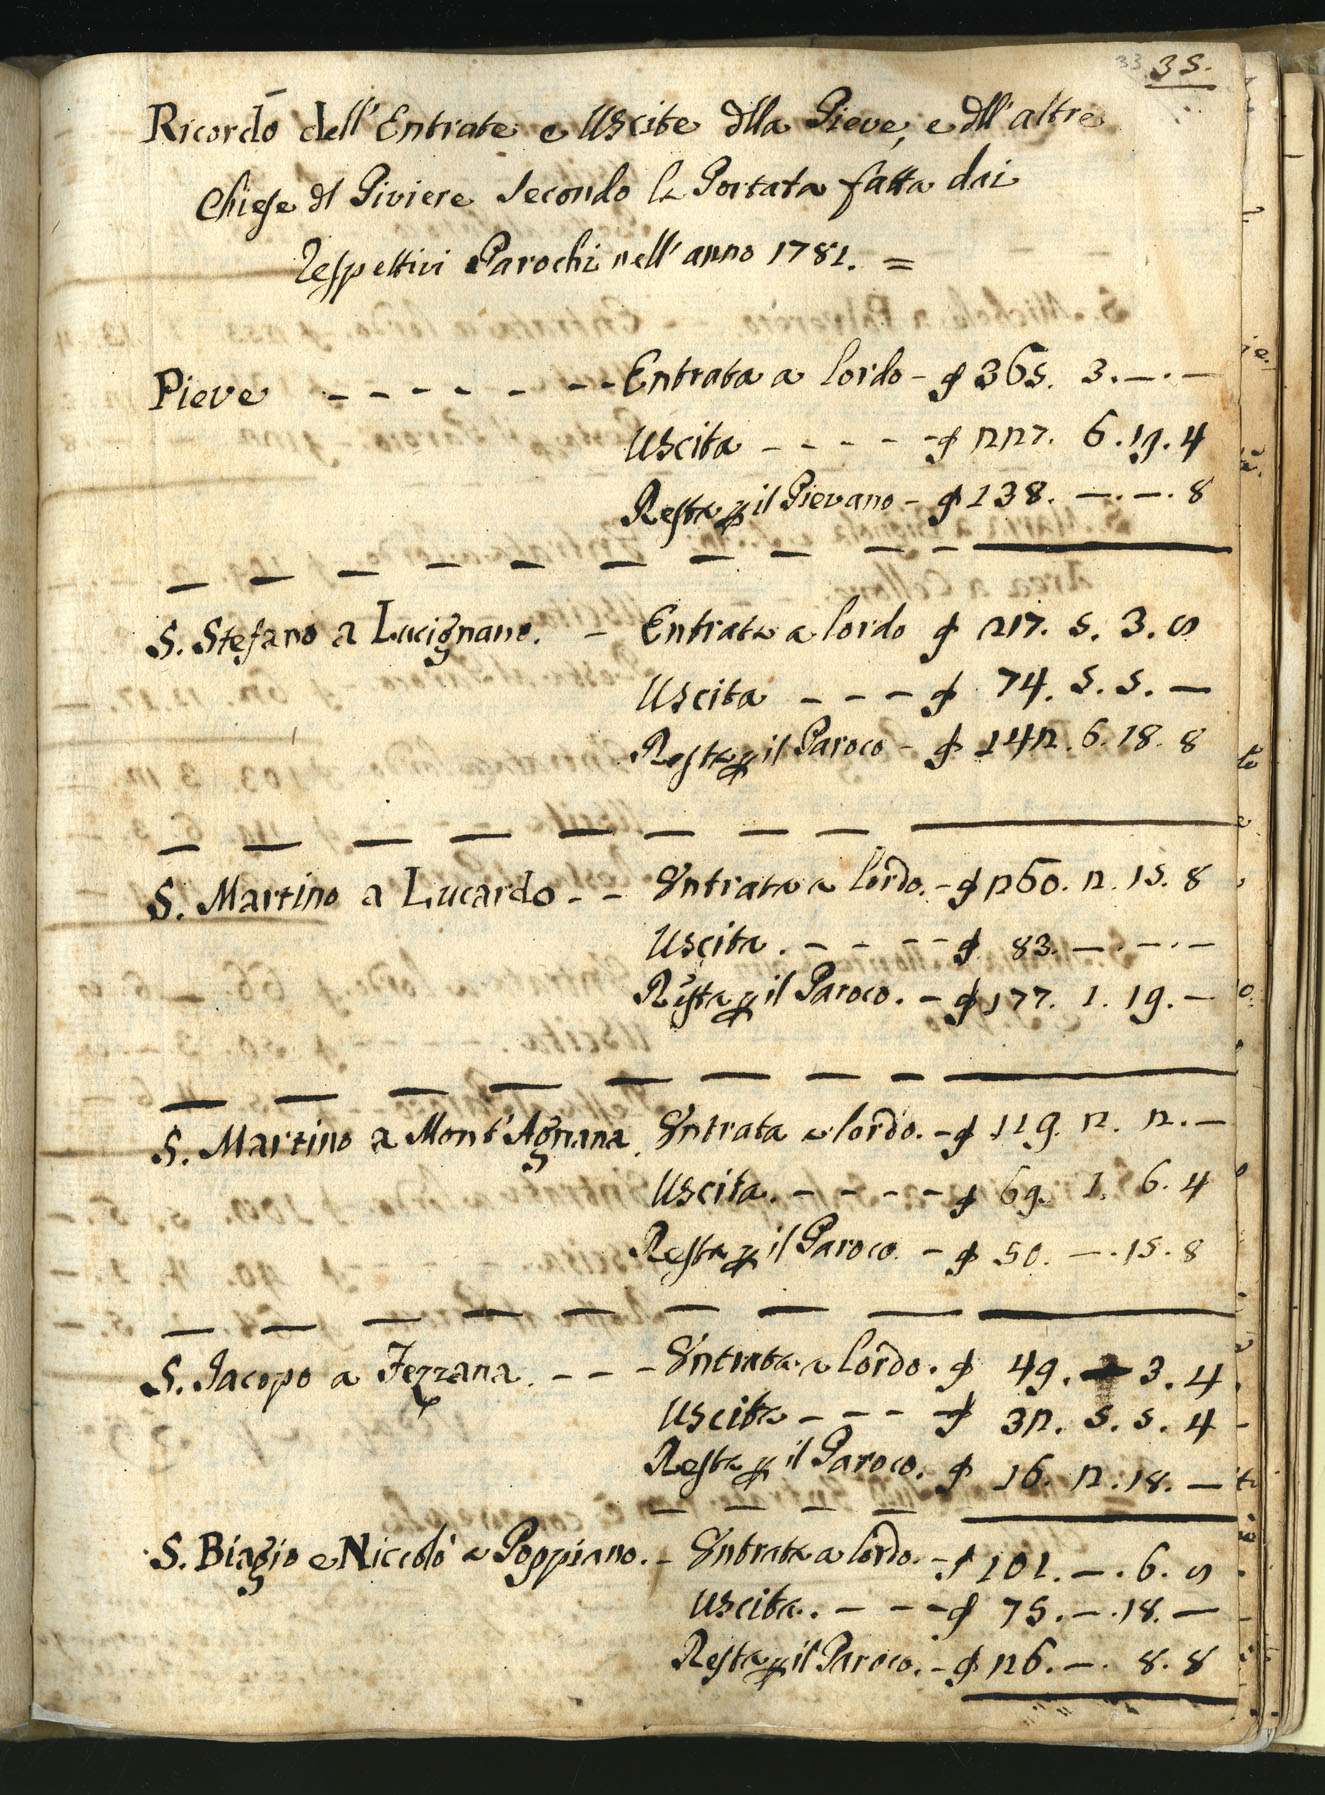 33 35.
Ricordo dell' Entrate e Uscite dlla Pieve, e dll' altre
Chiese dl Piviere secondo la Portata fatta dai
respettivi Parochi nell' anno 1781. =
Pieve - - - - - - - - Entrata a lordo - $ 365. 3. — . —
Uscita - - - - - $ 227. 6. 19. 4
Resta p il Pievano - $ 138. — . — . 8
S. Stefano a Lucignano. - Entrata a lordo $ 217. 5. 3. 8
Uscita - - - $ 74. 5. 5. —
Resta p il Paroco - $ 142. 6. 18. 8
S. Martino a Lucardo - - Entrata a lordo. - $ 260. 2. 15. 8
Uscita. - - - - $ 83. — . — . —
Resta p il Paroco. - $ 177. 1. 19. —
S. Martino a Mont'Agnana. Entrata a lordo. - $ 119. 2. 2. —
Uscita. - - - - $ 69. 1. 6. 4
Resta p il Paroco. - $ 50. — . 15. 8
S. Jacopo a Fezzana. - - - Entrata a lordo. $ 49. 1 3. 4
Uscita - - - $ 32. 5. 5. 4
Resta p il Paroco. $ 16. 2. 18. —
S. Biagio e Niccolò a Poppiano. - Entrata a lordo. - $ 101. — . 6. 8
Uscita. - - - $ 75. — . 18. —
Resta p il Paroco. - $ 26. — . 8. 8